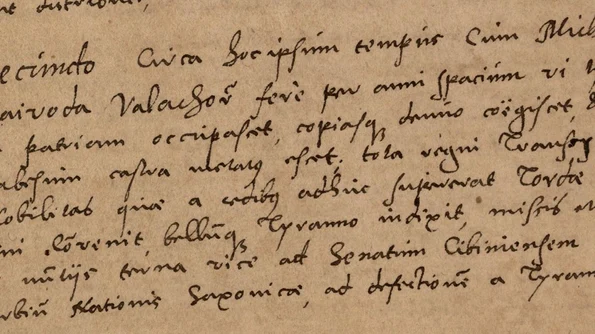 ecundo Circa hoc ipsum tempus Cum Mich
airoda Valachor̃ ferè per anni spacium vi
patriam occupasset, copiasq denuo coëgisset,
abesum castra metatq esset. tota regni Transsy
obilitas quæ a cedibq adhuc supererat Tordæ
Conrenit, bellumq Tyranno indixit, missis
nuntiis terna vice ad Senatum Cibiniensem
Nationis Saxonicæ, ad defectionem a Tyran